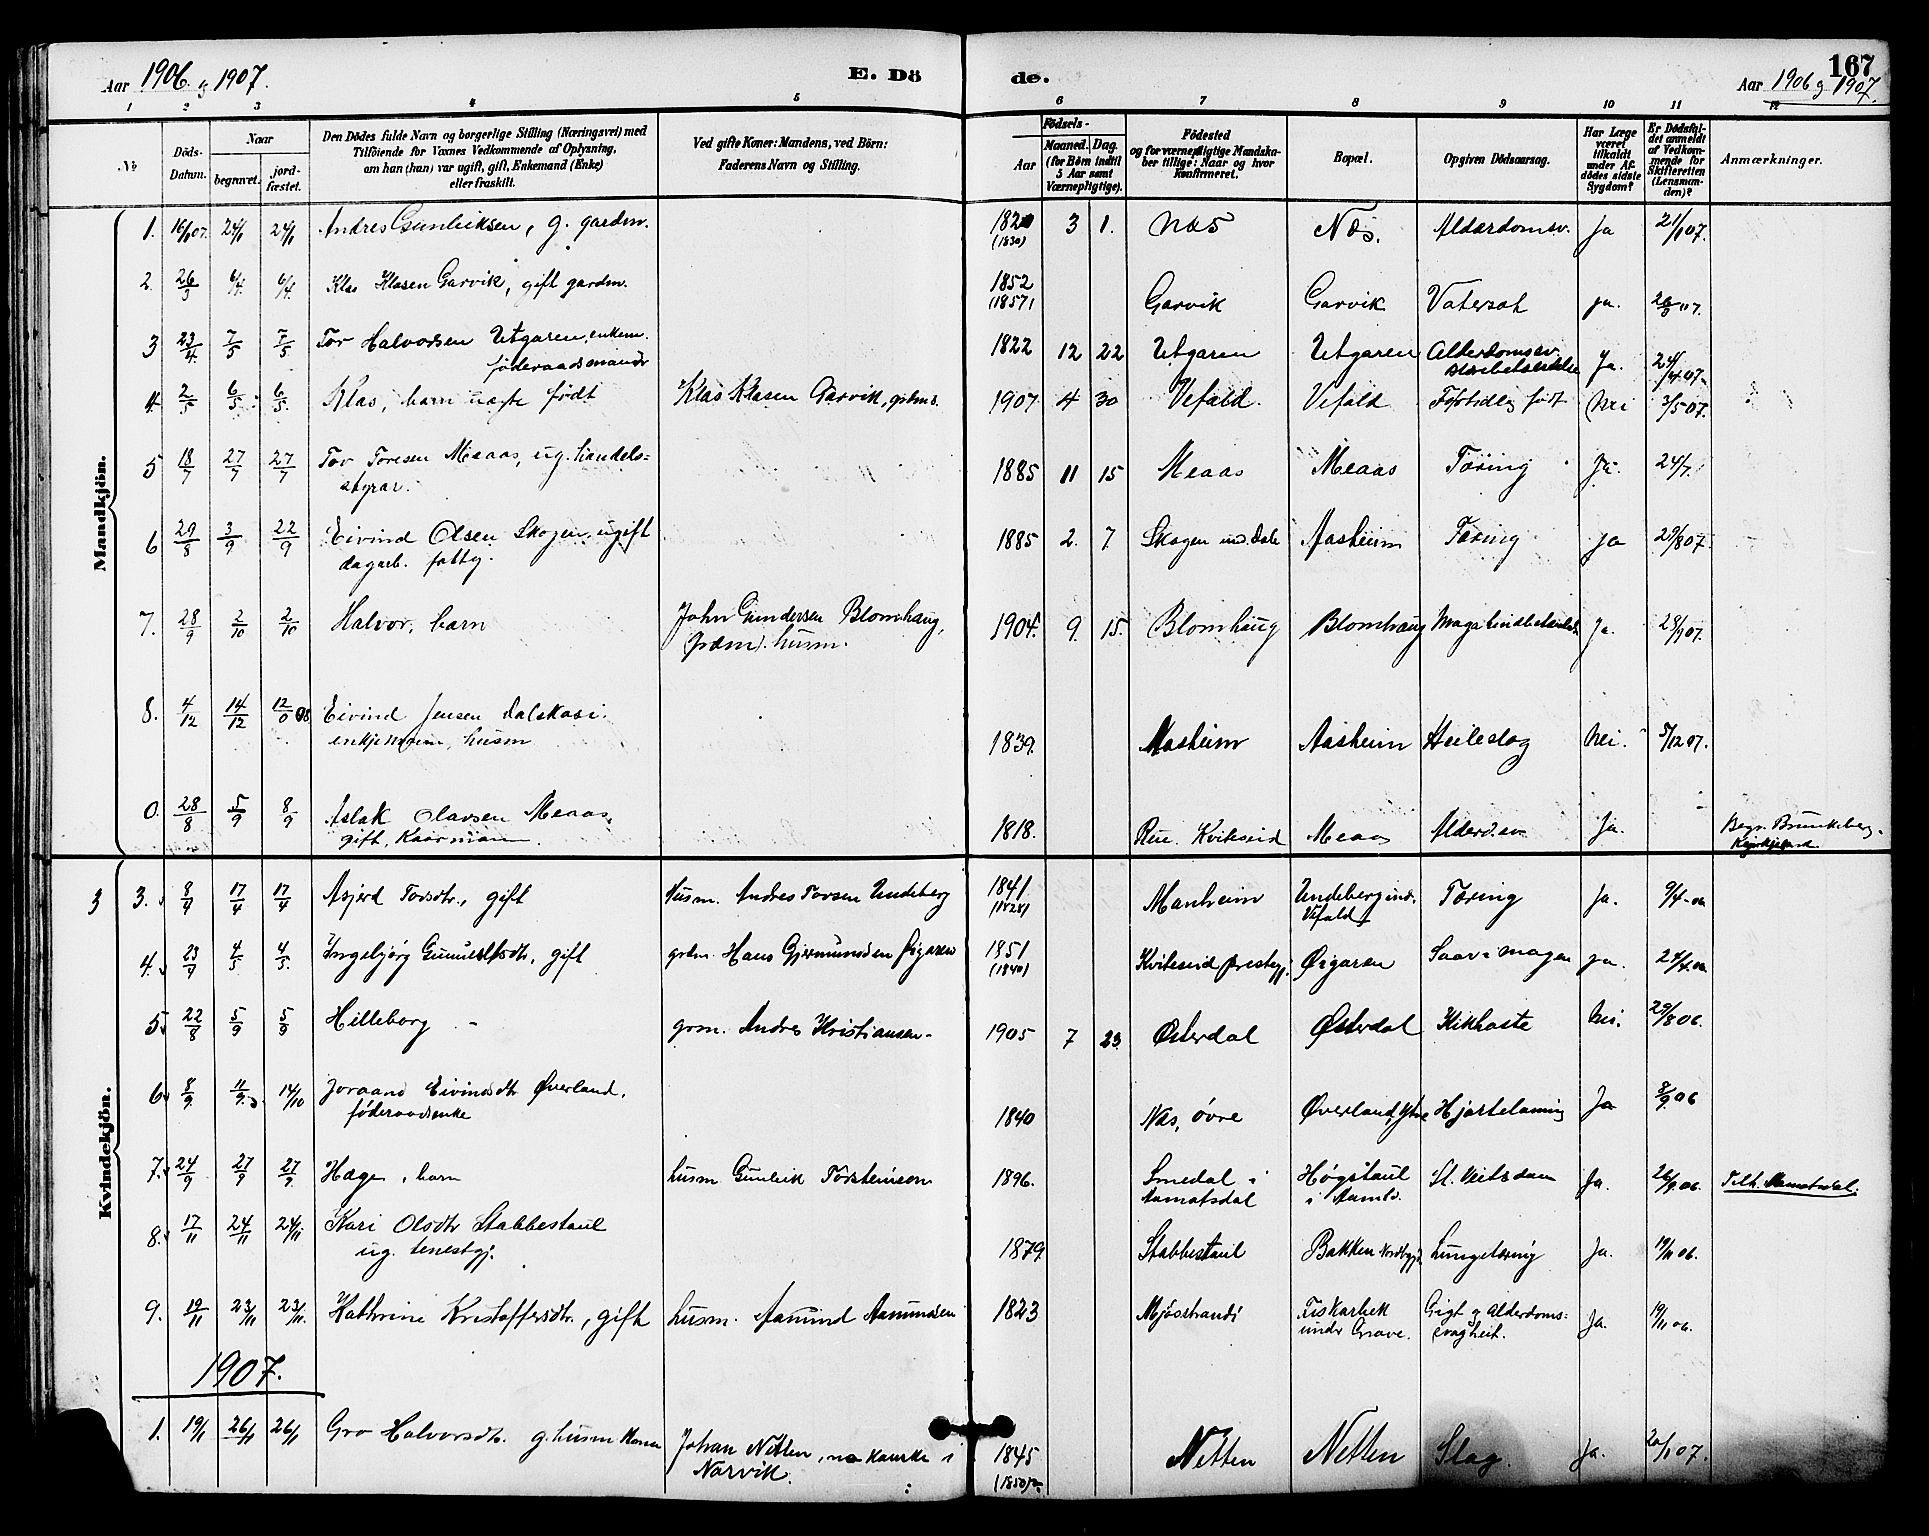 Aar 1906 og 1907.
E. Döde.
167
Aar 1906 og 1907.
1 2 3 4 5 6 7 8 9 10 11 12
No
Döds-Datum.
Naar
begravet.
jord-fæstet.
Den Dödes fulde Navn og borgerlige Stilling (Næringsvei) med
Tilföiende for Voxnes Vedkommende af Oplysning,
om han (hun) var ugift, gift, Enkemand (Enke)
eller fraskilt.
Ved gifte Koner: Mandens, ved Börn:
Faderens Navn og Stilling.
Födsels-
Aar
Maaned. Dag.
(for Börn indtil 5 Aar samt Værnepligtige).
Födested
og for værnepligtige Mandskaber tillige: Naar og hvor Konfirmeret.
Bopæl.
Opgiven Dödsaarsag.
Har Læge været tilkaldt under Afdödes sidste Sygdom?
Er Dödsfaldet anmeldt af Vedkommende for Skifteretten (Lensmanden)?
Anmærkninger.
Mandkjön.
1. 16/1 07. 24/1 24/1 Andres Gunleiksen, g. gardm. (1830) 3 1. Næs Næs. Alderdomsv. Ja 21/1 07.
2. 26/3 6/4. 6/4. Klas Klasen Garvik, gift gardm. 1852 (1857) Garvik Garvik Vatersot ja. 07.
3 23/4. 7/5 7/5 Tor Halvorsen Utgaren, enkem. føderaadsmand 1822 12 22 Utgaren Utgaren Alderdomssv. Ja. 24/4 07.
4. 2/5 6/5 6/5. Klas, barn født Klas Klasen Garvik, 1907 4 30 Vefald. Vefald Fortidleg født Nei 3/5 07.
5 18/7 27/7 27/7 Tov Toresen Meaas, ug. handels=
styrar. 1885 11 15 Meaas Meaas Tæring Ja. 24/7.
6 29/8 3/9 22/9 Eivind Olsen Skogen, ugift
dagarb. fattig. 1885 2. 7. Skogen und. Dale Aasheim Tæring Ja 29/8 07.
7. 28/9 2/10 2/10 Halvor, barn John Gundersen Blomhaug, husm. 1904. 9. 15. Blomhaug Blomhaug Ja. 07.
8. 4/12 14/12 Eivind Jensen Dalskaasi
enkjemann, husm 1839. Aasheim Aasheim Heileslag Nei. 5/12 07.
0. 28/8 5/9 8/9 Aslak Olavsen Meaas,
gift, Kaarmann. 1818. Kviteseid Meaas Alderd.sv. Ja. Begr. Brunkeberg
Kyrkjegard
Kvindekjön.
3 3. 17/4 17/4 Asjerd Torsdtr., gift husm. Andres Torsen Undeberg 1841 Manheim Undeberg und. Vefald Tæring Ja.
4. 23/4 4/5 4/5. Ingebjørg dtr, gift grdm. Hans Gjermundsen Øigaren 1851 (1840) Kviteseid prestegj. Øigaren Saar i magen ja.
5. 22/8 5/9 5/9 Hilleborg grm. Andres Kristiansen 1905 7 23. Østerdal Østerdal Kikhoste Nei. 29/8 06.
6. 8/9 11/9. 14/10 Joraand Eivindsdtr Øverland.
føderaadsenke 1840 Næs, øvre Øverland, Ytre Hjartelaming Ja 8/9. 06
7. 24/9 27/9 27/9. Hæge, barn husm Gunleik Torsteinson 1896. Smedal i
Aamotsdal Høgstaul
i Aamd. St. Veitsdans Ja. 26/9. 06. Tilh. Aamotsdal.
8. 17/11 24/11 24/11 Kari Olsdtr Stabbestaul
ug. tenestgj. 1879. Stabbestaul Bakken Nordbygd. Lungetæring Ja. 19/11 06.
9. 19/11 23/11 23/11. Kathrine Kristoffersdtr., gift husm. Aamund Aamundsen 1823 Mjösstrand Fiskarbek
under Grave. Gigt og Alderdoms=
svaghet. Ja. 19/11 06.
1907.
1. 19/1 26/1 26/1 Gro Halvorsdtr. g. husm.kona Johan Netten, no kanske i
Narvik. 1845 Netten Netten Slag. Ja. 20/1 07.